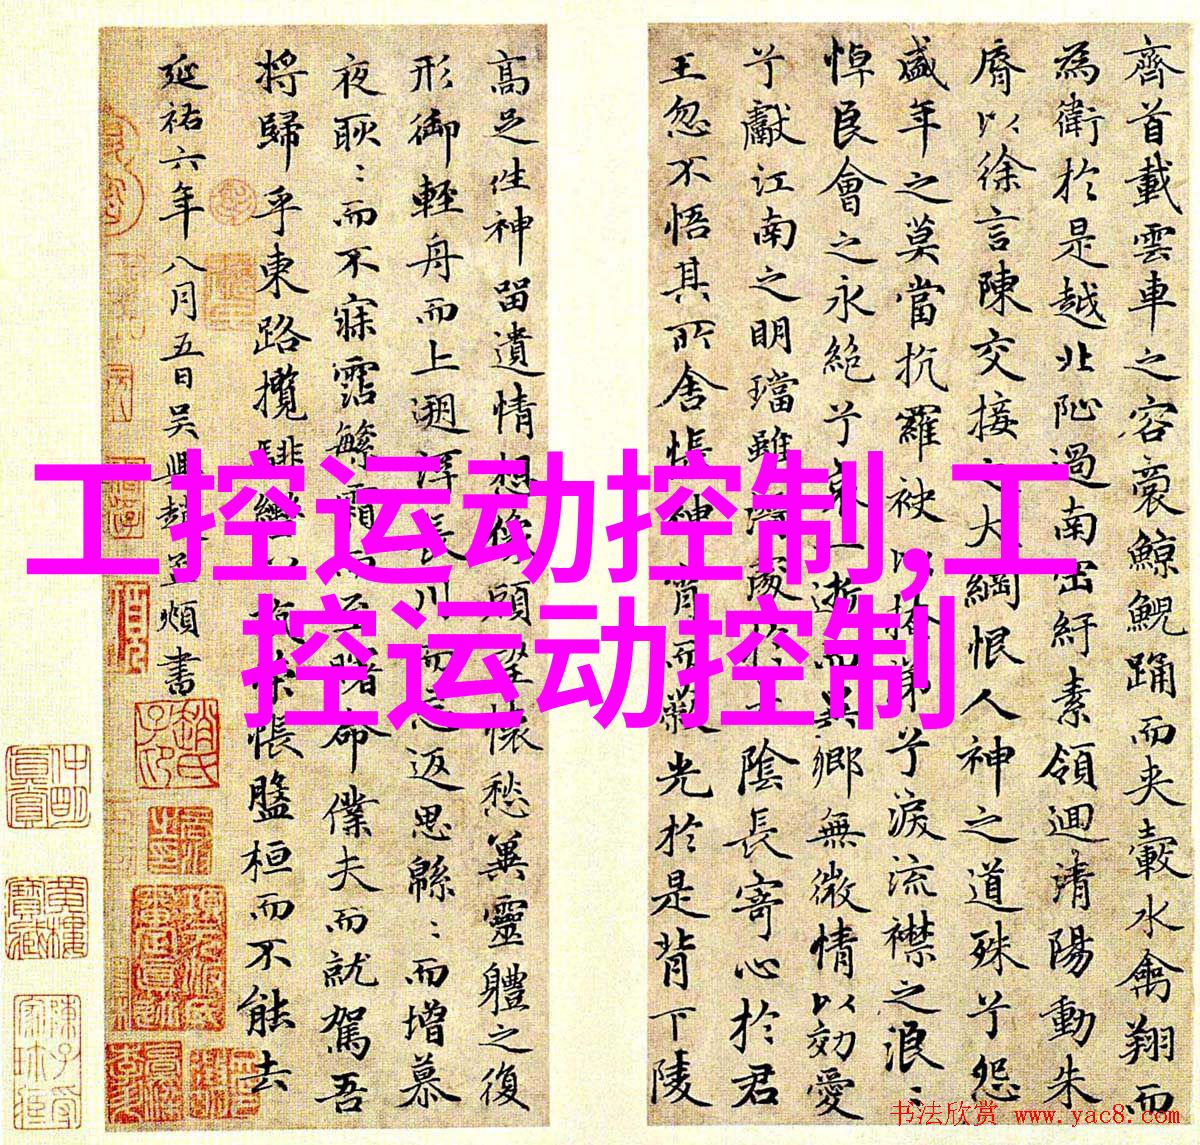 齊首載雲車之容裔鯨鯢踊而夾轂水禽翔而
為衛於是越北沚過南岡紆素領迴清陽動朱
脣以徐言陳交接之大綱恨人神之道殊兮怨
盛年之莫當抗羅袂以掩涕兮淚流襟之浪:
悼良會之永絕兮哀一逝而異鄉無微情以効愛
兮獻江南之明璫雖潛處於太陰長寄心於君
王忽不悟其所舍悵神宵而蔽光於是背下陵
高足往神留遺情想像顧望懷愁冀靈體之復
形御輕舟而上遡浮長川而忘返思緜:而增慕
夜耿:而不寐霑繁霜而至曙命僕夫而就駕吾
將歸乎東路攬騑轡以抗策悵盤桓而不能去
延祐六年八月五日吳興趙孟頫書
工控运动控制,工
控运动控制
书法欣赏 www.yac8.com